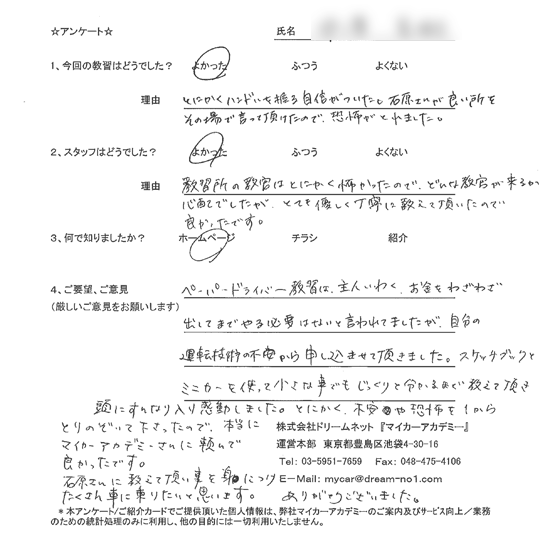 ☆アンケート☆ 氏名
1、今回の教習はどうでした? よかった ふつう よくない
理由 とにかくハンドルを握る自信がついたし石原さんが良い所を
その場で言って頂けたので、恐怖がとれました。
2、スタッフはどうでした? よかった ふつう よくない
理由 教習所の教官はとにかく怖かったので、どんな教官が来るか
心配でしたが、とても優しく丁寧に教えて頂いたので
良かったです。
3、何で知りましたか? ホームページ チラシ 紹介
4、ご要望、ご意見 ペーパードライバー教習は、主人いわく、お金をわざわざ
(厳しいご意見をお願いします)
出してまでやる必要はないと言われてましたが、自分の
運転技術の不安から申し込ませて頂きました。スケッチブックと
ミニカーを使って小さな事でもじっくりと分かるまで教えて頂き
頭にすんなり入り感動しました。とにかく、不安や恐怖を1から
とりのぞいて下さったので、本当に
マイカーアカデミーさんに頼んで
良かったです。
石原さんに教えて頂いた事を身につけ
たくさん車に乗りたいと思います。 ありがとうございました。
株式会社ドリームネット 『マイカーアカデミー』
運営本部 東京都豊島区池袋4-30-16
Tel: 03-5951-7659 Fax: 048-475-4106
E-Mail: mycar@dream-no1.com
*本アンケート/ご紹介カードでご提供頂いた個人情報は、弊社マイカーアカデミーのご案内及びサービス向上/業務
のための統計処理のみに利用し、他の目的には一切利用いたしません。